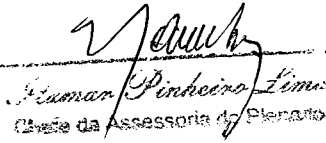 Itamar Pinheiro Lima
Chefe da Assessoria do Plenario